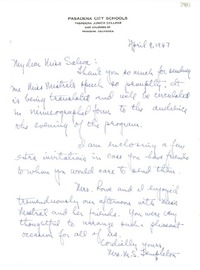 PASADENA CITY SCHOOLS
PASADENA JUNIOR COLLEGE
PASADENA, CALIFORNIA
April 9, 1947
My dear Miss
Thank you so much for sending
me Miss Mistral's speech so promptly. It
is being translated and will be circulated
in mimeographed form to the audience
the evening of the program.
I am enclosing a few
extra invitations in case you have friends
to whom you would care to send them.
Mrs. and I enjoyed
tremendously our afternoon with Miss
Mistral and her friends. You were very
thoughtful to arrange such a pleasant
account for all of us.
Cordially yours,
Mrs. M. S. Templeton